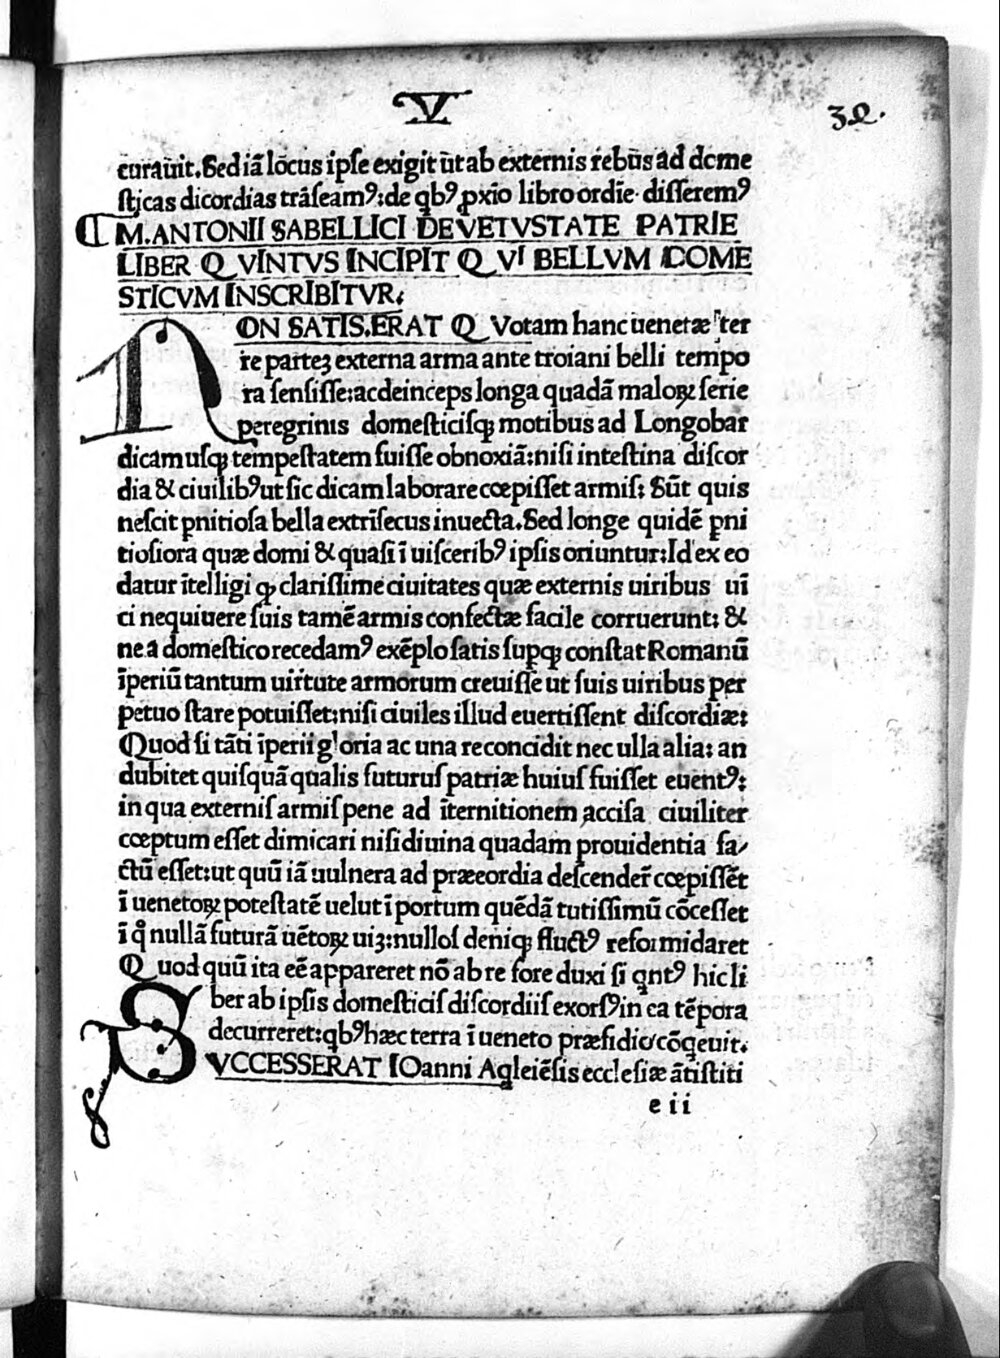 V
32.
curauit. Sed iã locus ipse exigit ut ab externis rebus ad dome
sticas dicordias trãseamꝰ: de qbꝰ ꝓxĩo libro ordĩe disseremꝰ
M. ANTONII SABELLICI DE VETVSTATE PATRIE
LIBER QVINTVS INCIPIT QVI BELLVM DOME
STICVM INSCRIBITVR.
NON SATIS ERAT Q Votam hanc uenetæ ter
re parteʒ externa arma ante troiani belli tempo
ra sensisse: ac deinceps longa quadã maloꝝ serie
peregrinis domesticisqꝫ motibus ad Longobar
dicam usqꝫ tempestatem fuisse obnoxiã: nisi intestina discor
dia & ciuilibꝰ ut sic dicam laborare cœpisset armis: Sũt quis
nescit ꝑnitiosa bella extrĩsecus inuecta. Sed longe quidẽ ꝑni
tiosiora quæ domi & quasi ĩ uisceribꝰ ipsis oriuntur: Id ex eo
datur ĩtelligi ꝙ clarissime ciuitates quæ externis uiribus uĩ
ci nequiuere suis tamẽ armis confectæ facile corruerunt: &
ne a domestico recedamꝰ exẽplo satis supqꝫ constat Romanũ
ĩperiũ tantum uirtute armorum creuisse ut suis uiribus per
petuo stare potuisset: nisi ciuiles illud euertissent discordiæ:
Quod si tãti ĩperii gloria ac una reconcidit nec ulla alia: an
dubitet quisquã qualis futurus patriæ huius fuisset euentꝰ:
in qua externis armis pene ad ĩternitionem accisa ciuiliter
cœptum esset dimicari nisi diuina quadam prouidentia fa/
ctũ esset: ut quũ iã uulnera ad præeordia descender̃ cœpissẽt
ĩ uenetoꝝ potestatẽ uelut ĩ portum quẽdã tutissimũ cõcesset
ĩ q̃ nullã futurã uẽtoꝝ uiʒ: nullos deniqꝫ fluctꝰ reformidaret
Quod quũ ita eẽ appareret nõ ab re fore duxi si qntꝰ hic li
ber ab ipsis domesticis discordiis exorsꝰ in ea tẽpora
decurreret: qbꝰ hæc terra ĩ ueneto præsidio cõqeuit.
SVCCESSERAT IOanni Aqleiẽsis ecclesiæ ãtistiti
e ii